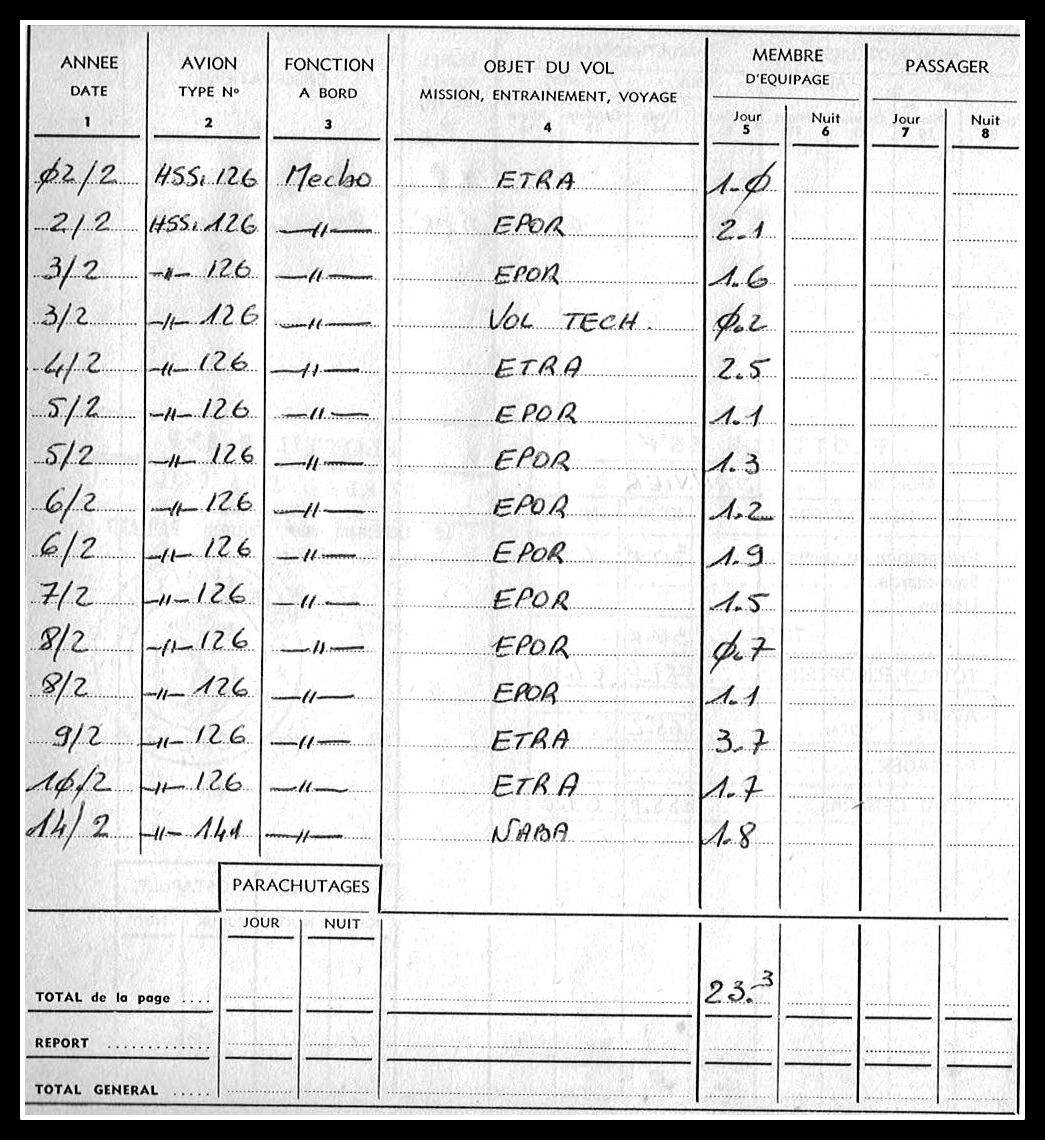 ANNEE AVION FONCTION OBJET DU VOL MEMBRE D'EQUIPAGE PASSAGER
DATE TYPE Nº A BORD MISSION, ENTRAINEMENT, VOYAGE Jour Nuit Jour Nuit
1 2 3 4 5 6 7 8
02/2 HSS1 126 Mecbo ETRA 1.0
2/2 HSS1 126 —〃— EPOR 2.1
3/2 -〃- 126 —〃— EPOR 1.6
3/2 -〃- 126 —〃— VOL TECH. 0.2
4/2 -〃- 126 —〃— ETRA 2.5
5/2 -〃- 126 —〃— EPOR 1.1
5/2 -〃- 126 —〃— EPOR 1.3
6/2 -〃- 126 —〃— EPOR 1.2
6/2 -〃- 126 —〃— EPOR 1.9
7/2 -〃- 126 —〃— EPOR 1.5
8/2 -〃- 126 —〃— EPOR 0.7
8/2 -〃- 126 —〃— EPOR 1.1
9/2 -〃- 126 —〃— ETRA 3.7
10/2 -〃- 126 —〃— ETRA 1.7
14/2 -〃- 141 —〃— NABA 1.8
PARACHUTAGES
JOUR NUIT
TOTAL de la page .... 23.3
REPORT ............
TOTAL GENERAL .....